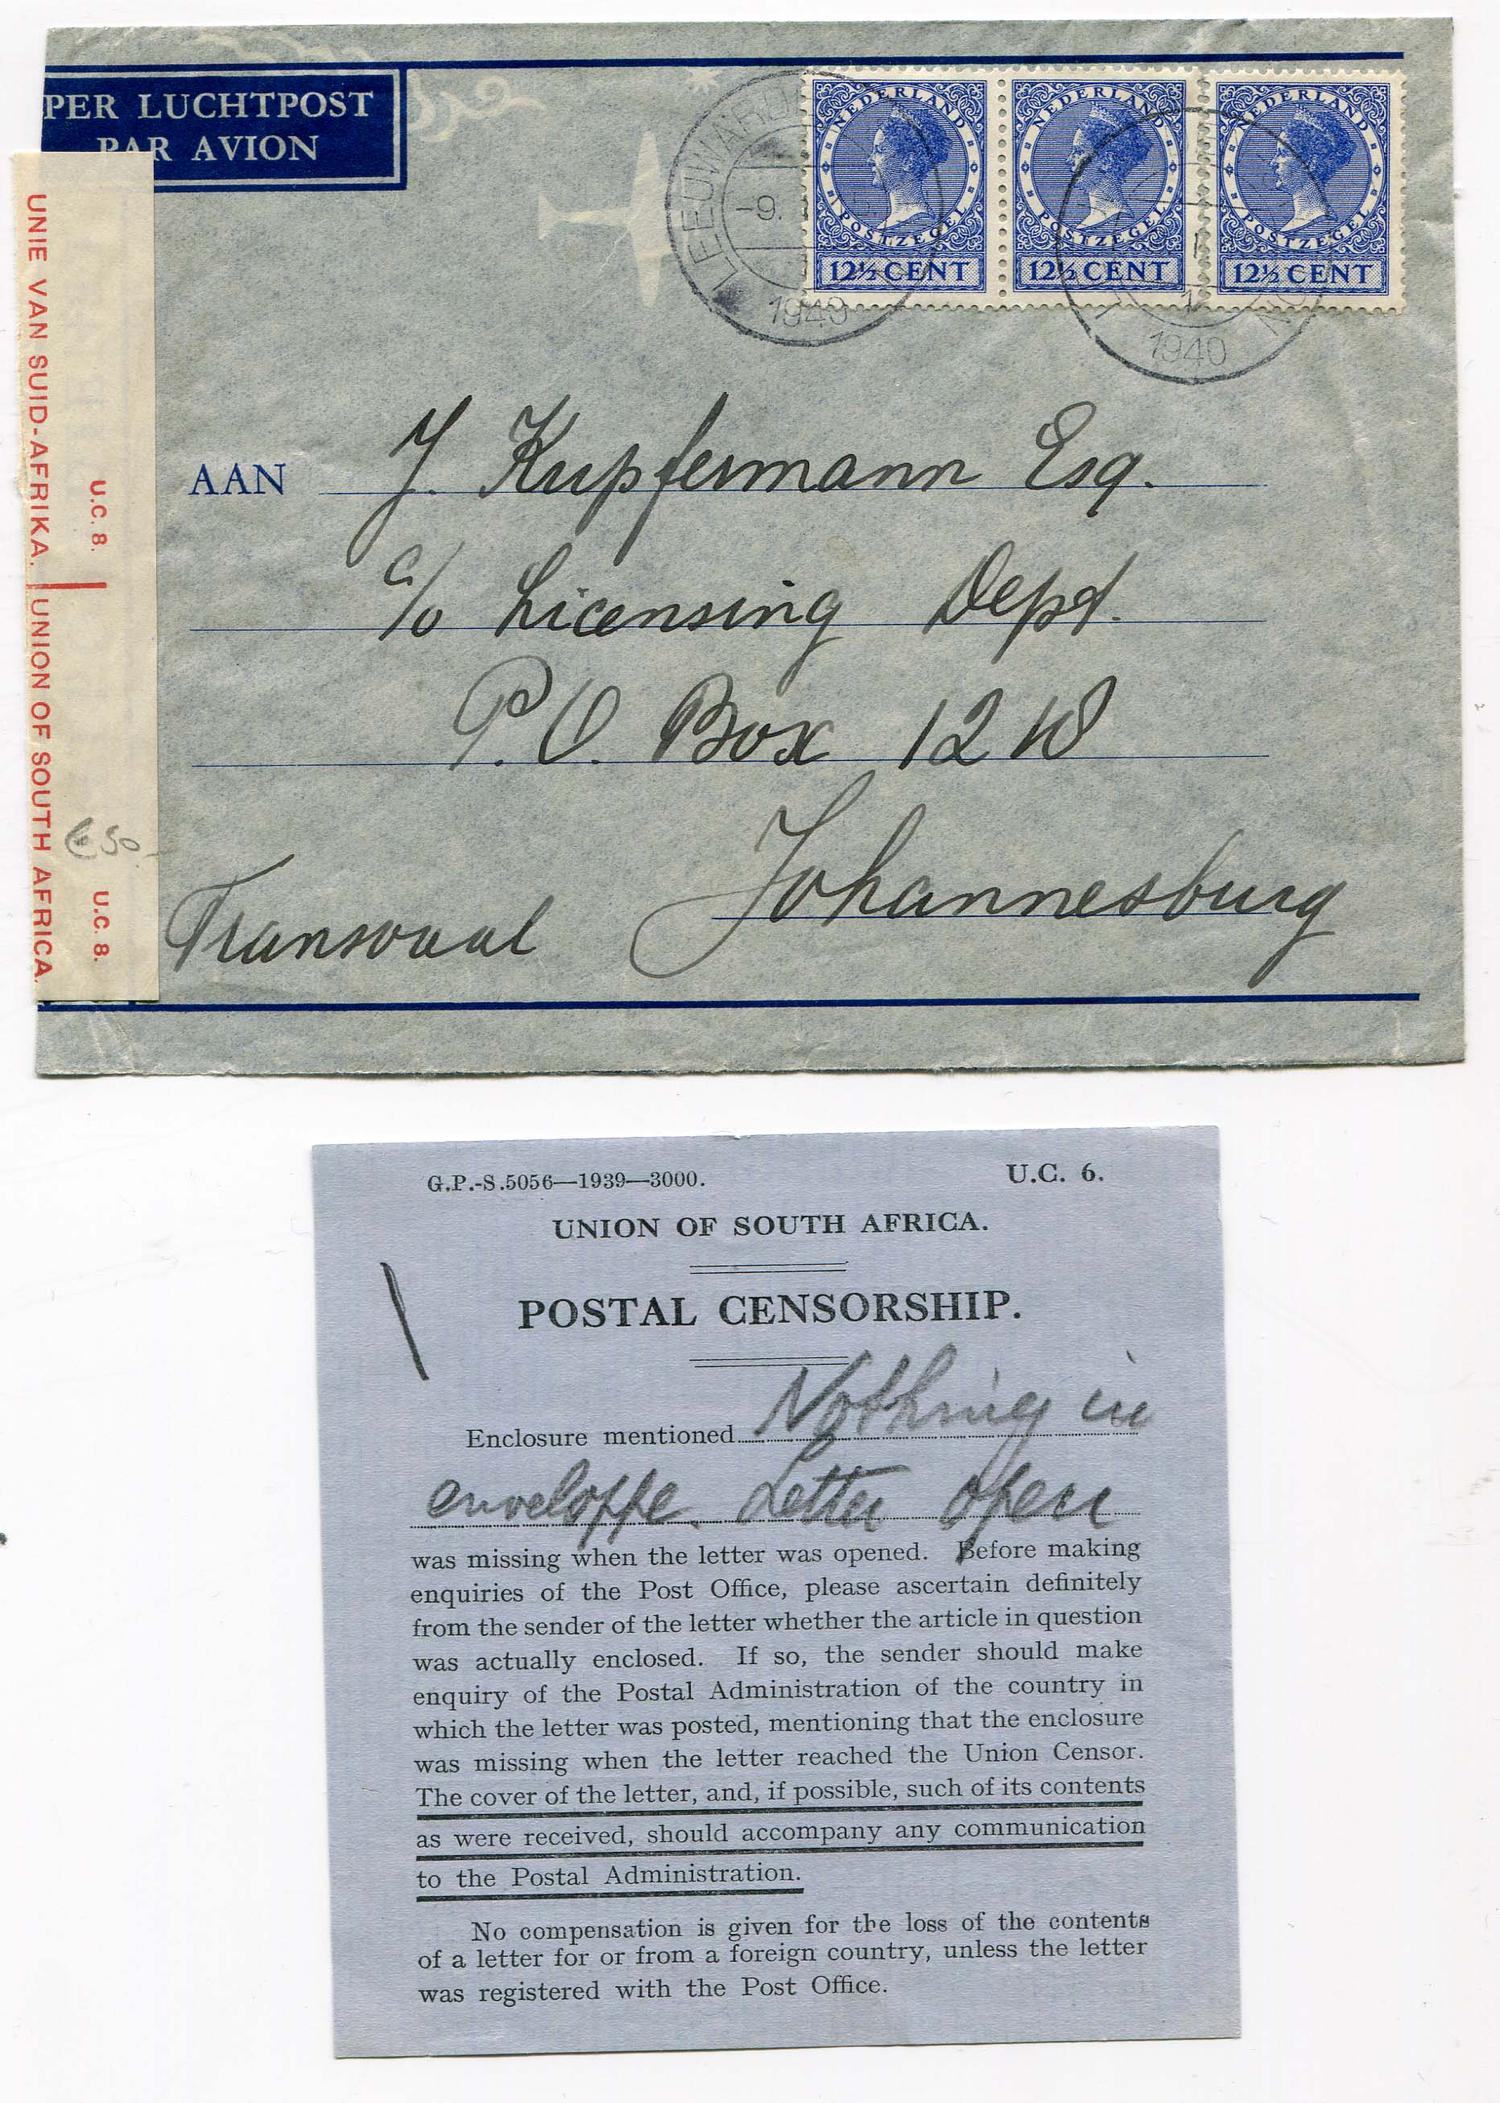 PER LUCHTPOST
PAR AVION
UNIE VAN SUID-AFRIKA. UNION OF SOUTH AFRICA.
U.C. 8. U.C. 8.
€50.-
LEEUWARDEN
-9.
1940
1940
NEDERLAND NEDERLAND NEDERLAND
POSTZEGEL POSTZEGEL POSTZEGEL
12½ CENT 12½ CENT 12½ CENT
AAN J. Kupfermann Esq.
c/o Licensing Dept.
P.O. Box 12
Johannesburg
Transvaal
G.P.-S.5056—1939—3000. U.C. 6.
UNION OF SOUTH AFRICA.
POSTAL CENSORSHIP.
Enclosure mentioned Nothing in
enveloppe. Letter open
was missing when the letter was opened. Before making
enquiries of the Post Office, please ascertain definitely
from the sender of the letter whether the article in question
was actually enclosed. If so, the sender should make
enquiry of the Postal Administration of the country in
which the letter was posted, mentioning that the enclosure
was missing when the letter reached the Union Censor.
The cover of the letter, and, if possible, such of its contents
as were received, should accompany any communication
to the Postal Administration.
No compensation is given for the loss of the contents
of a letter for or from a foreign country, unless the letter
was registered with the Post Office.